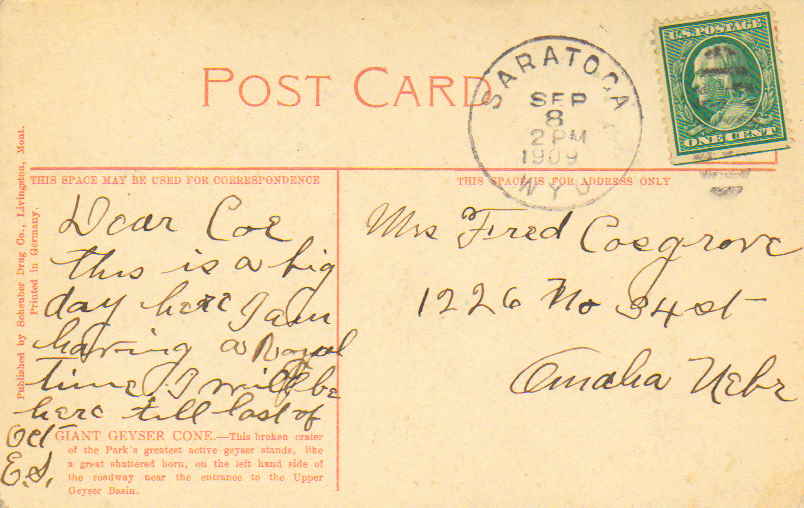 POST CARD
SARATOGA
SEP
8
2 PM
1909
WYO
U.S. POSTAGE
ONE CENT
THIS SPACE MAY BE USED FOR CORRESPONDENCE
THIS SPACE IS FOR ADDRESS ONLY
Published by Scheuber Drug Co., Livingston, Mont.
Printed in Germany.
Dear Coz
this is a big
day here I am
having a Royal
time. I will be
here till last of
Oct
E.S.
Mrs Fred Cosgrove
1226 No 34 st
Omaha Nebr
GIANT GEYSER CONE.—This broken crater
of the Park's greatest active geyser stands, like
a great shattered horn, on the left hand side of
the roadway near the entrance to the Upper
Geyser Basin.